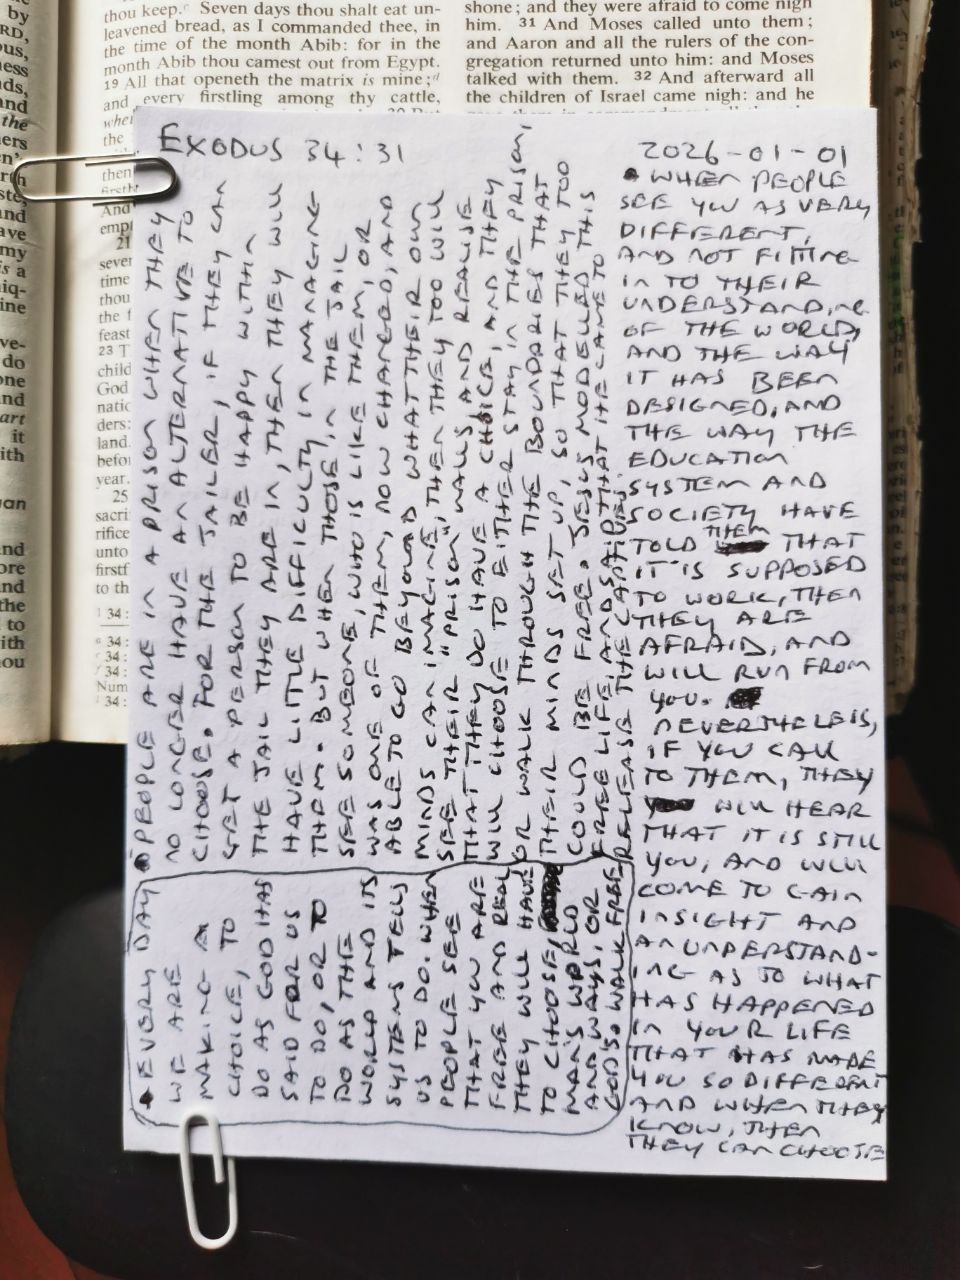 thou keep. Seven days thou shalt eat un-
leavened bread, as I commanded thee, in
the time of the month Abib: for in the
month Abib thou camest out from Egypt.
19 All that openeth the matrix is mine;
and every firstling among thy cattle,
the
then
And
empt
21
seven
time
thou
the f
feast
23 T
child
God
natic
ders:
land.
befor
year.
25
sacri
rifice
unto
firstf
to th
1 34:
34:
34:
34:
Num
34:
shone; and they were afraid to come nigh
him. 31 And Moses called unto them;
and Aaron and all the rulers of the con-
gregation returned unto him: and Moses
talked with them. 32 And afterward all
the children of Israel came nigh: and he
EXODUS 34:31
2026-01-01
• WHEN PEOPLE
SEE YOU AS VERY
DIFFERENT,
AND NOT FITTING
IN TO THEIR
UNDERSTANDING
OF THE WORLD,
AND THE WAY
IT HAS BEEN
DESIGNED, AND
THE WAY THE
EDUCATION
SYSTEM AND
SOCIETY HAVE
TOLD THEM THAT
IT IS SUPPOSED
TO WORK, THEN
THEY ARE
AFRAID, AND
WILL RUN FROM
YOU.
NEVERTHELESS,
IF YOU CALL
TO THEM, THEY
WILL HEAR
THAT IT IS STILL
YOU, AND WILL
COME TO GAIN
INSIGHT AND
AN UNDERSTAND-
ING AS TO WHAT
HAS HAPPENED
IN YOUR LIFE
THAT HAS MADE
YOU SO DIFFERENT
AND WHEN THEY
KNOW, THEN
THEY CAN CHOOSE
• PEOPLE ARE IN A PRISON WHEN THEY
NO LONGER HAVE AN ALTERNATIVE TO
CHOOSE. FOR THE JAILER, IF THEY CAN
GET A PERSON TO BE HAPPY WITHIN
THE JAIL THEY ARE IN, THEN THEY WILL
HAVE LITTLE DIFFICULTY IN MANAGING
THEM. BUT WHEN THOSE IN THE JAIL
SEE SOMEONE, WHO IS LIKE THEM, OR
WAS ONE OF THEM, NOW CHANGED, AND
ABLE TO GO BEYOND WHAT THEIR OWN
MINDS CAN IMAGINE, THEN THEY TOO WILL
SEE THEIR "PRISON" WALLS, AND REALISE
THAT THEY DO HAVE A CHOICE, AND THEY
WILL CHOOSE TO EITHER STAY IN THE PRISON,
OR WALK THROUGH THE BOUNDARIES THAT
THEIR MINDS SET UP, SO THAT THEY TOO
COULD BE FREE. JESUS MODELLED THIS
FREE LIFE, AND SAID THAT HE CAME TO
RELEASE THE CAPTIVES.
• EVERY DAY
WE ARE
MAKING A
CHOICE, TO
DO AS GOD HAS
SAID FOR US
TO DO, OR TO
DO AS THE
WORLD AND ITS
SYSTEMS TELLS
US TO DO. WHEN
PEOPLE SEE
THAT YOU ARE
FREE AND REAL
THEY WILL HAVE
TO CHOOSE,
MAN'S WORLD
AND WAYS, OR
GOD'S WALK FREE